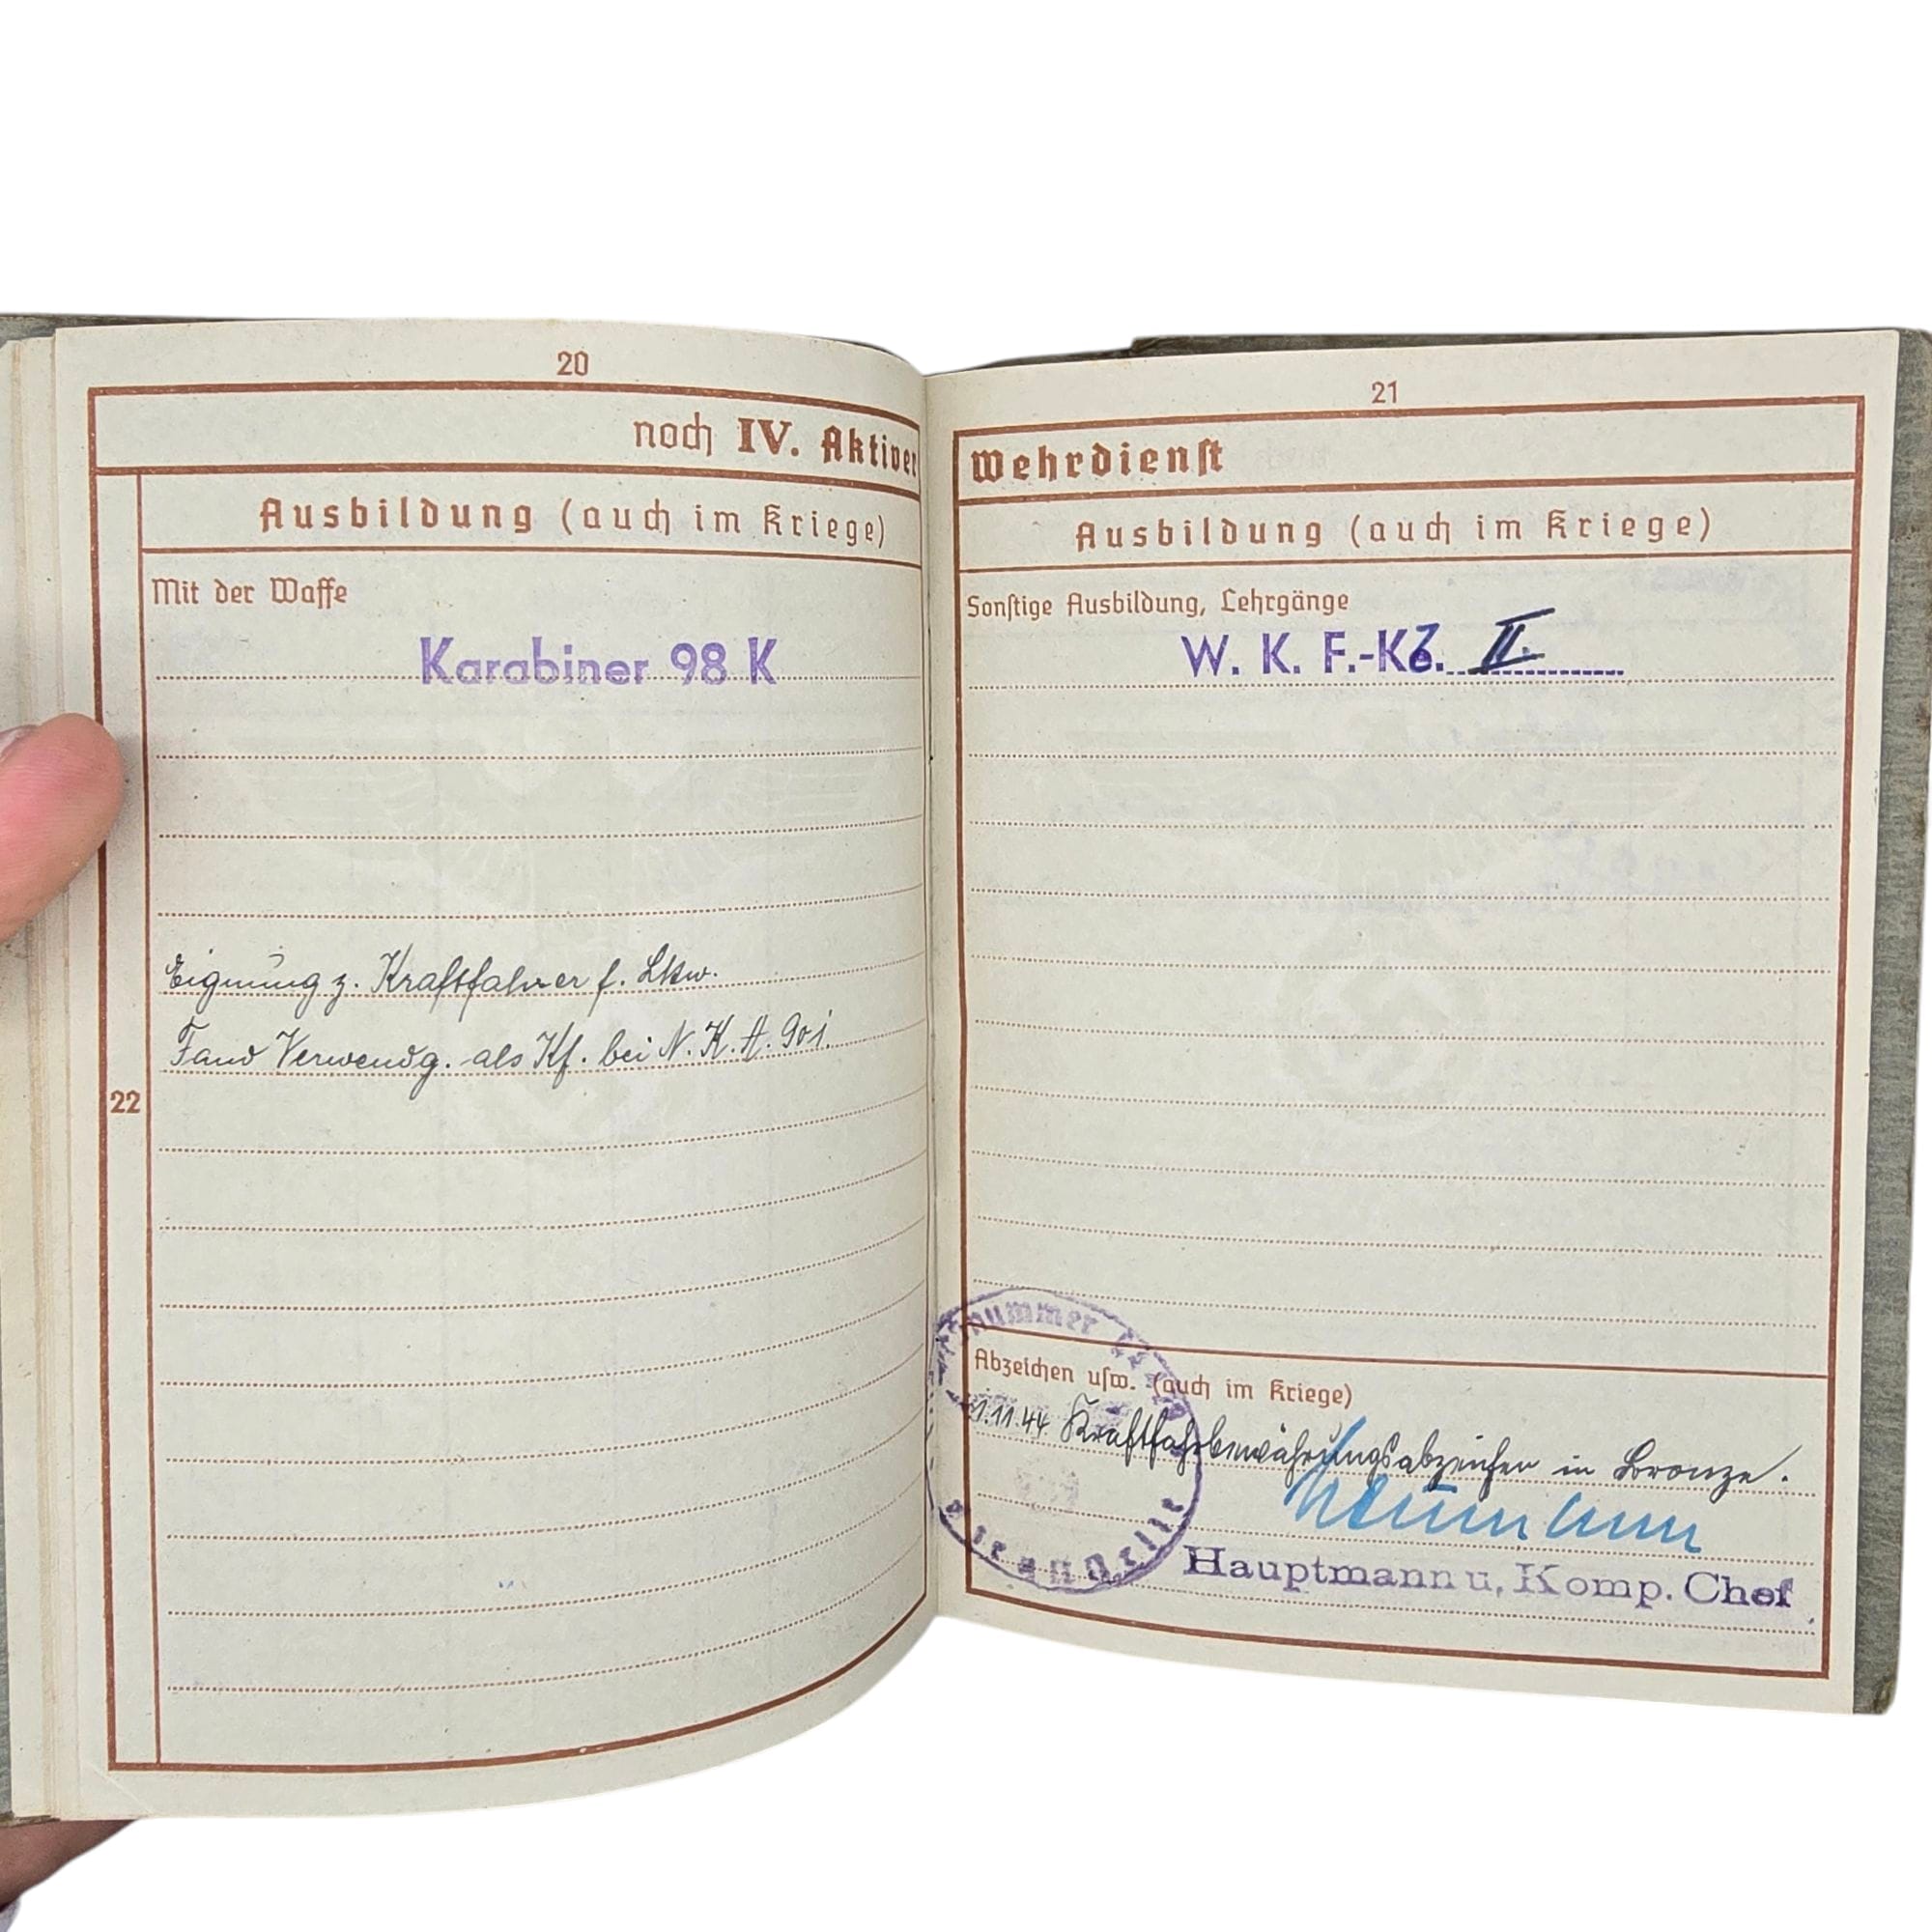 20
noch IV. Aktiver
Ausbildung (auch im Kriege)
Mit der Waffe
Karabiner 98 K
Eignung z. Kraftfahrer f. Lkw.
Fand Verwendg. als Kf. bei N. K. A. 901.
22
21
Wehrdienst
Ausbildung (auch im Kriege)
Sonstige Ausbildung, Lehrgänge
W. K. F.-K6. II.
nummer
Abzeichen usw. (auch im Kriege)
1.11.44 Kraftfahrbewährungsabzeichen in Bronze.
Hauptmann u. Komp. Chef